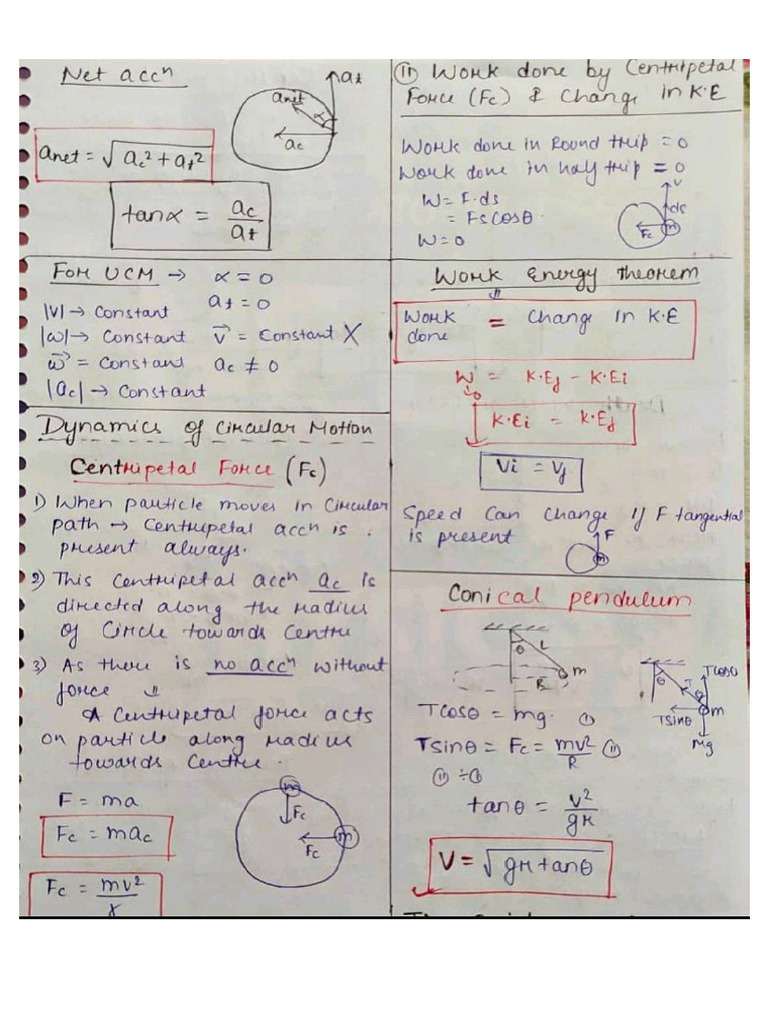 Net accⁿ
at
anet
α
ac
anet = √ac² + at²
tanα = ac/at
For UCM → α = 0
at = 0
|V| → Constant
|ω| → Constant
v⃗ = Constant X
ω⃗ = Constant
ac ≠ 0
|ac| → Constant
Dynamics of Circular Motion
Centripetal Force (Fc)
1) When particle moves in Circular
path → Centripetal accⁿ is
present always.
2) This Centripetal accⁿ ac is
directed along the radius
of Circle towards Centre
3) As there is no accⁿ without
force ⇓
A Centripetal force acts
on particle along radius
towards Centre.
F = ma
Fc = mac
Fc = mv²/r
m
Fc
m
Fc
(ii) Work done by Centripetal
Force (Fc) & Change in K.E
Work done in Round trip = 0
Work done in half trip = 0
W = F.ds
= Fs cosθ.
W = 0
v
ds
Fc
m
Work Energy Theorem
⇓
Work done = Change in K.E
W = K.Ef - K.Ei
↓0
K.Ei = K.Ef
Vi = Vf
Speed Can Change if F tangential
is present
F
m
Conical pendulum
θ
L
m
R
θ
T
θ
Tcosθ
Tsinθ
m
Mg
Tcosθ = mg. (i)
Tsinθ = Fc = mv²/R (ii)
(ii) ÷ (i)
tanθ = v²/gr
V = √gr tanθ